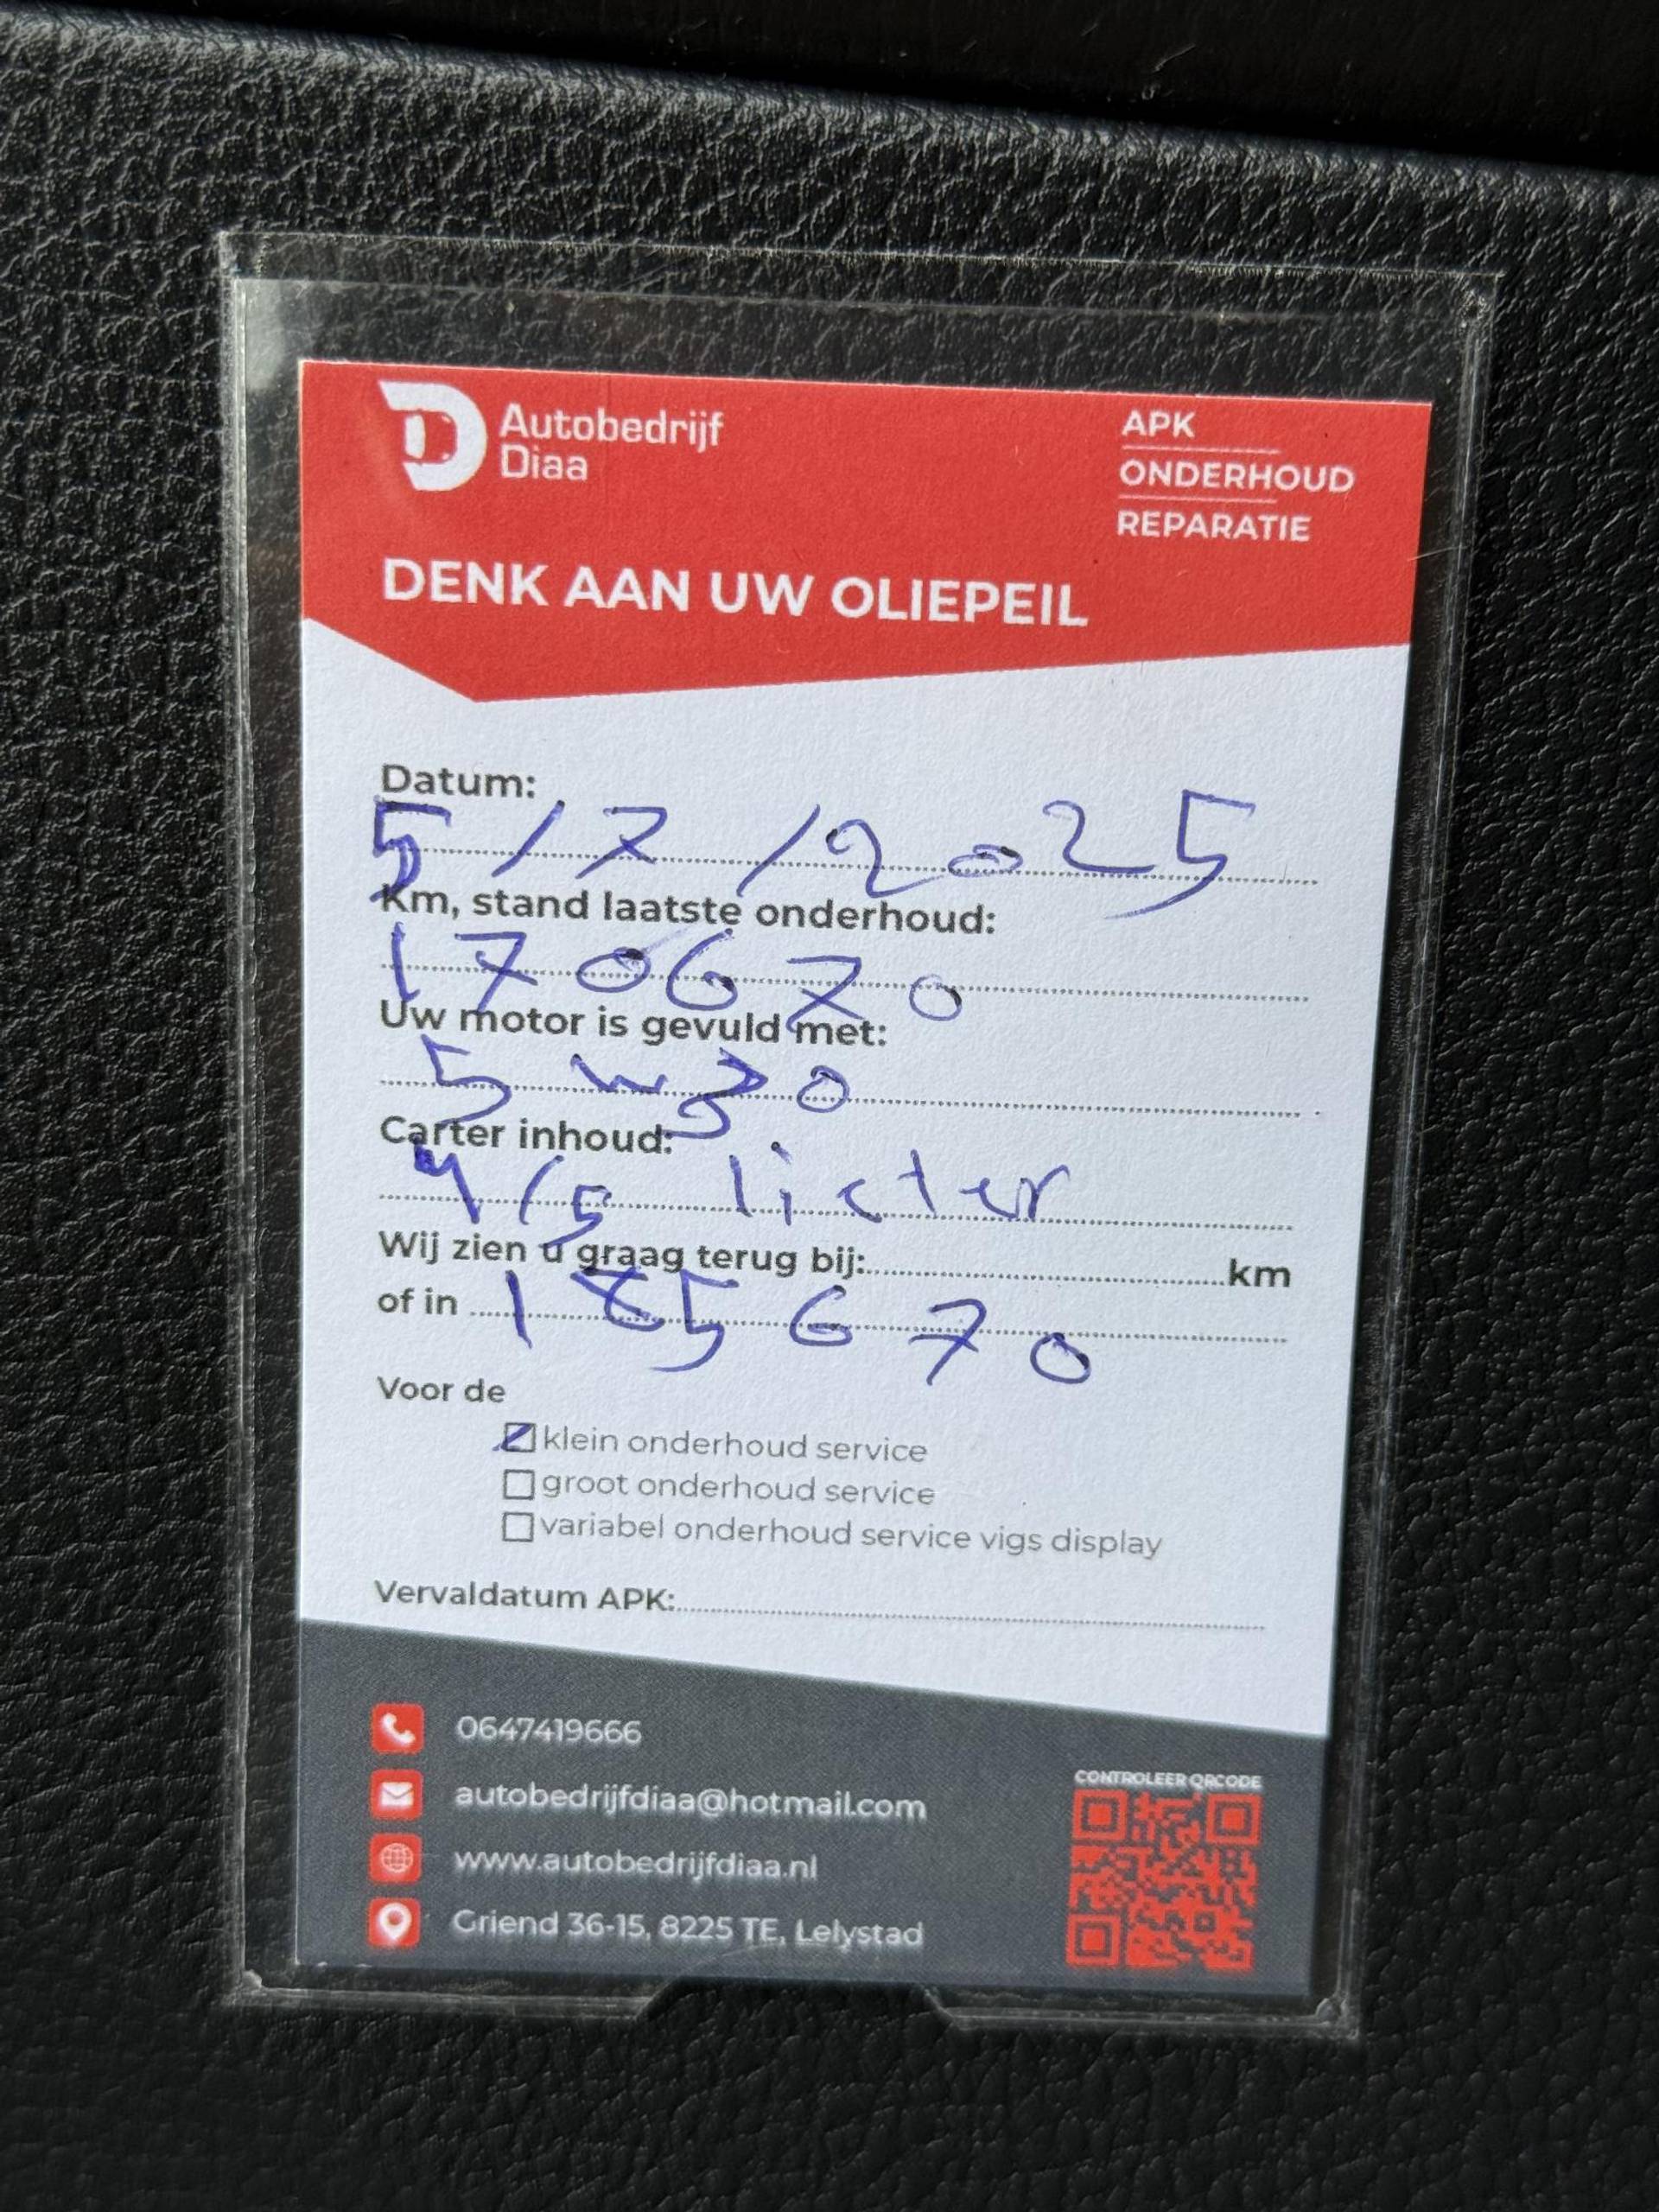 Autobedrijf
Diaa
APK
ONDERHOUD
REPARATIE
DENK AAN UW OLIEPEIL
Datum:
5/7/2025
Km, stand laatste onderhoud:
170670
Uw motor is gevuld met:
5 w 30
Carter inhoud:
4/5 licter
Wij zien u graag terug bij:.......km
of in ....... 185670
Voor de
klein onderhoud service
groot onderhoud service
variabel onderhoud service vigs display
Vervaldatum APK:
0647419666
autobedrijfdiaa@hotmail.com
www.autobedrijfdiaa.nl
Griend 36-15, 8225 TE, Lelystad
CONTROLEER QRCODE